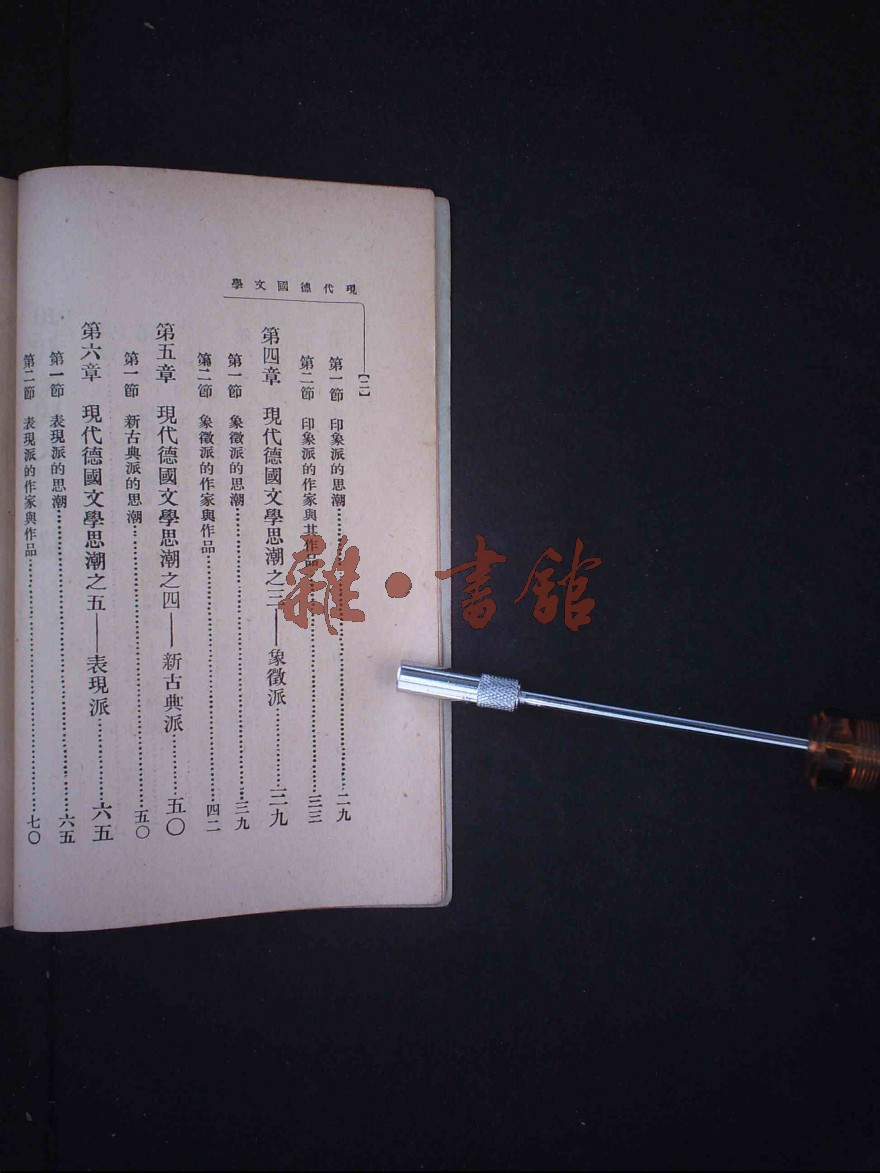 現代德國文學
【二】
第一節 印象派的思潮……二九
第二節 印象派的作家與其作品……三三
第四章 現代德國文學思潮之三——象徵派……三九
第一節 象徵派的思潮……三九
第二節 象徵派的作家與作品……四二
第五章 現代德國文學思潮之四——新古典派……五〇
第一節 新古典派的思潮……五〇
第六章 現代德國文學思潮之五——表現派……六五
第一節 表現派的思潮……六五
第二節 表現派的作家與作品……七〇
雜·書館